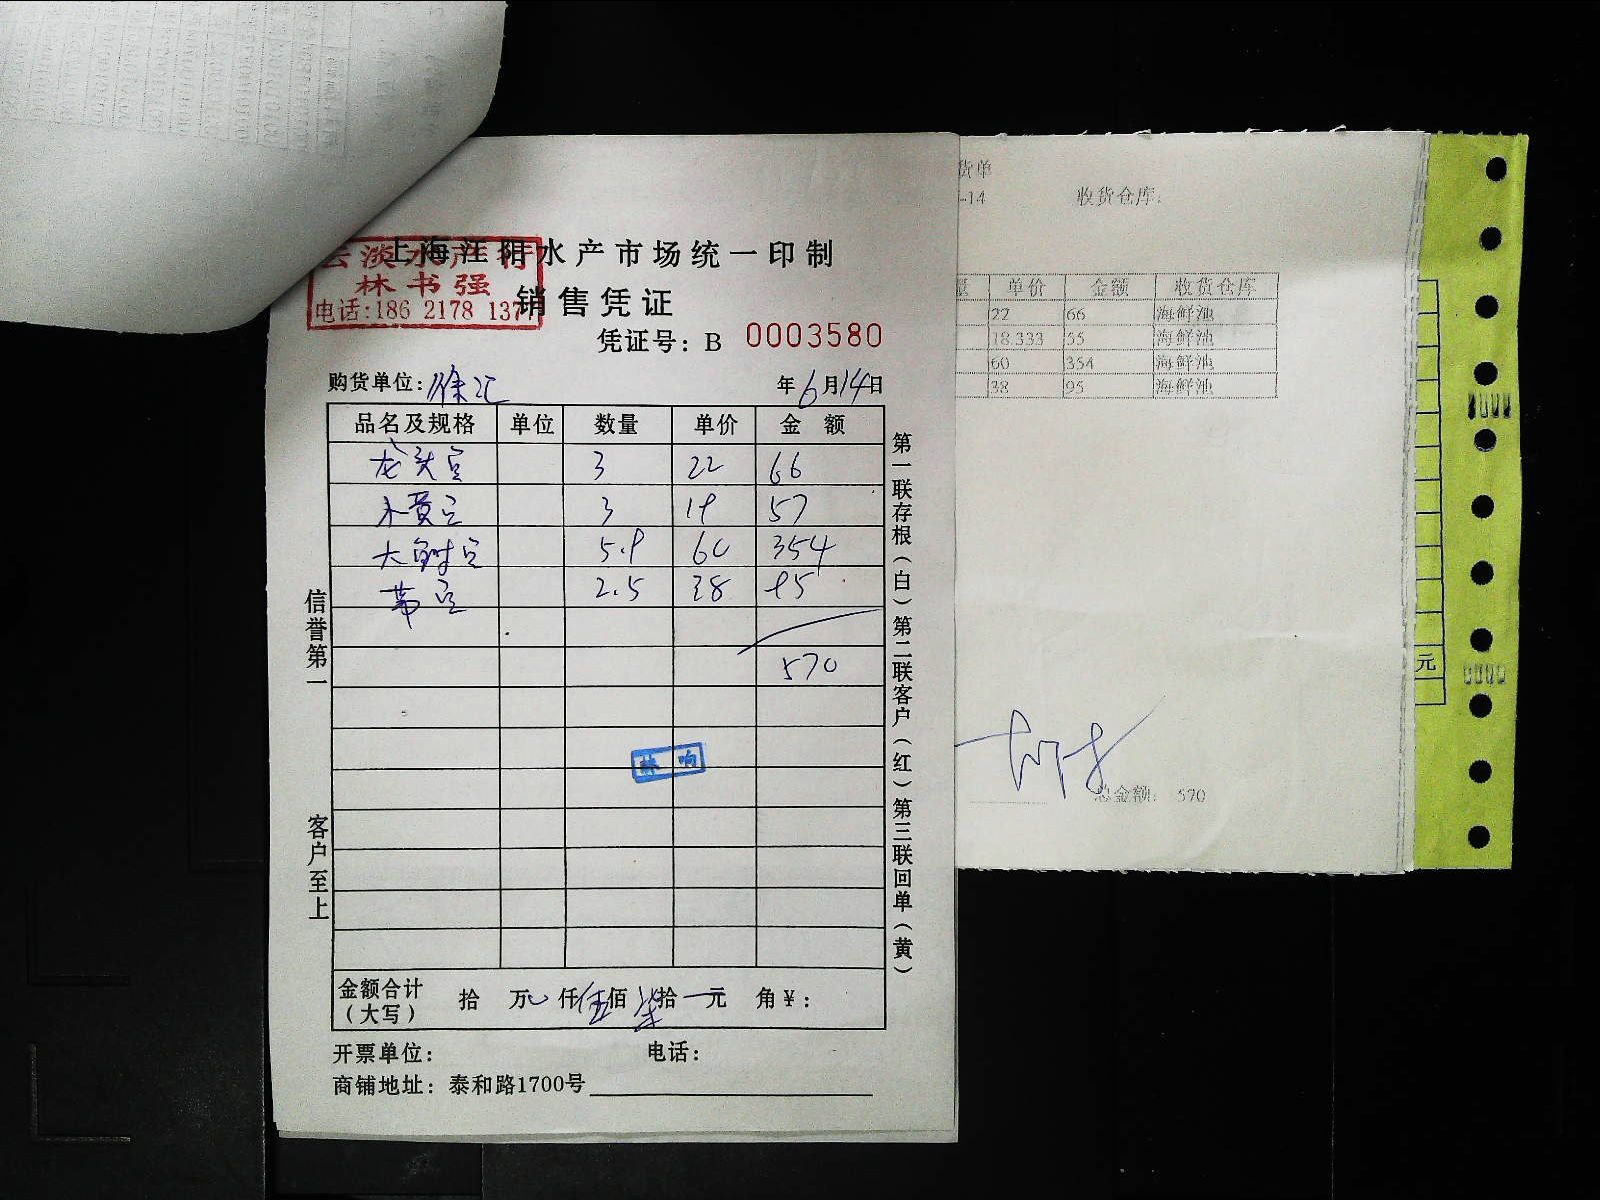 上海江阳水产市场统一印制
云淡水产行
林书强
电话:186 2178 137
销售凭证
凭证号: B 0003580
购货单位: 徐汇 年6月14日
品名及规格 单位 数量 单价 金 额
龙头 3 22 66
3 19 57
大 5.9 60 354
2.5 38 95
570
金额合计（大写） 拾 万 仟伍佰柒拾 元 角¥:
开票单位: 电话:
商铺地址: 泰和路1700号
信誉第一
客户至上
第一联存根（白）第二联客户（红）第三联回单（黄）
货单
-14 收货仓库:
量 单价 金额 收货仓库
22 66 海鲜池
18.333 55 海鲜池
60 354 海鲜池
38 95 海鲜池
总金额: 570
元